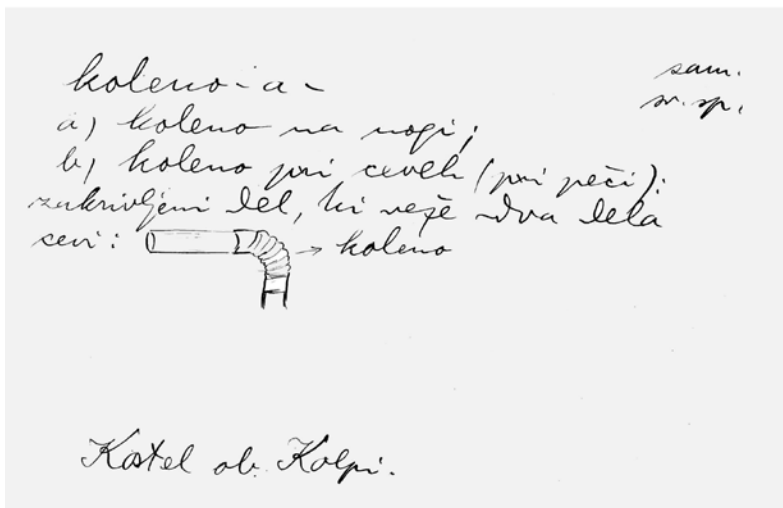 koleno - a -
sam.
sr. sp.
a) koleno na nogi;
b) koleno pri ceveh (pri peči):
zakrivljeni del, ki veže dva dela
cevi:
→ koleno
Kostel ob Kolpi.